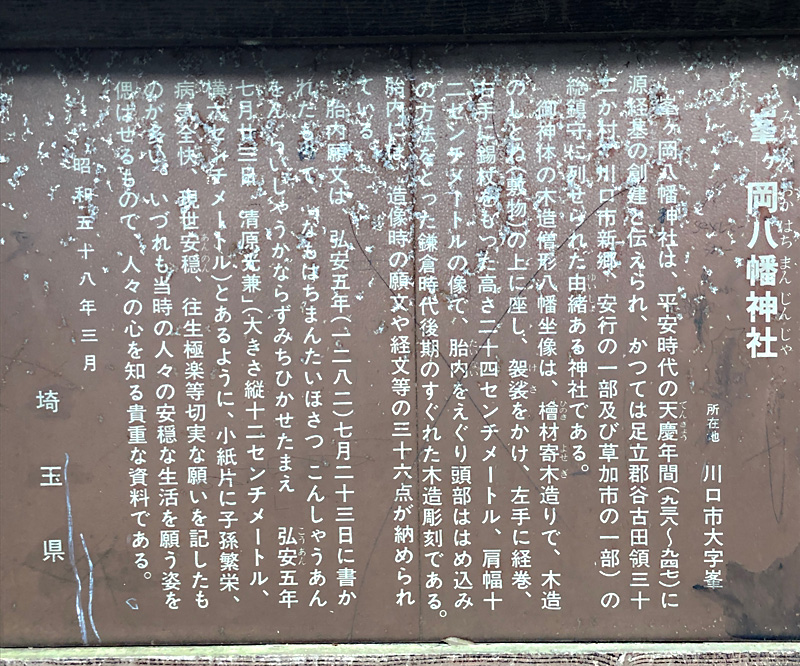 峯ヶ岡八幡神社
所在地 川口市大字峯
峯ヶ岡八幡神社は、平安時代の天慶年間(九三八〜九四七)に
源経基の創建と伝えられ、かつては足立郡谷古田領三十
二か村(川口市新郷、安行の一部及び草加市の一部)の
総鎮守に列せられた由緒ある神社である。
御神体の木造僧形八幡坐像は、檜材寄木造りで、木造
のしとね(敷物)の上に座し、袈裟をかけ、左手に経巻、
右手に錫杖をもった高さ二十四センチメートル、肩幅十
二センチメートルの像で、胎内をえぐり頭部ははめ込み
の方法をとった鎌倉時代後期のすぐれた木造彫刻である。
胎内には、造像時の願文や経文等の三十六点が納められ
ている。
胎内願文は、弘安五年(一二八二)七月二十三日に書か
れたもので、「なもはちまんたいほさつ こんしゃうあん
をん らいしゃうかならずみちひかせたまえ 弘安五年
七月廿三日 清原光兼」(大きさ縦十二センチメートル、
横六センチメートル)とあるように、小紙片に子孫繁栄、
病気全快、現世安穏、往生極楽等切実な願いを記したも
のが多い。いづれも当時の人々の安穏な生活を願う姿を
偲ばせるもので、人々の心を知る貴重な資料である。
昭和五十八年三月
埼玉県